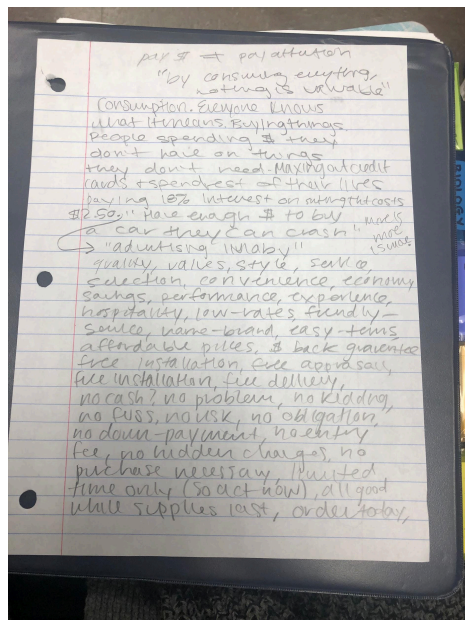 pay $ = pay attention
"by consuming everything,
nothing is valuable"
Consumption. Everyone knows
what it means. Buying things.
People spending $ they
don't have on things
they don't need - Maxing out credit
cards + spend rest of their lives
paying 18% interest on that costs
$2.50. "Have enough $ to buy
a car they can crash"
more is
more
"advertising lullaby"
quality, values, style, service,
selection, convenience, economy
savings, performance, experience,
hospitality, low-rates, friendly-
service, name-brand, easy-terms,
affordable prices, $ back guarantee
free installation, free appraisal,
free installation, free delivery,
no cash? no problem, no kidding,
no fuss, no risk, no obligation,
no down-payment, no entry
fee, no hidden charges, no
purchase necessary, limited
time only (so act now), all good
while supplies last, order today,
BIOLOGY